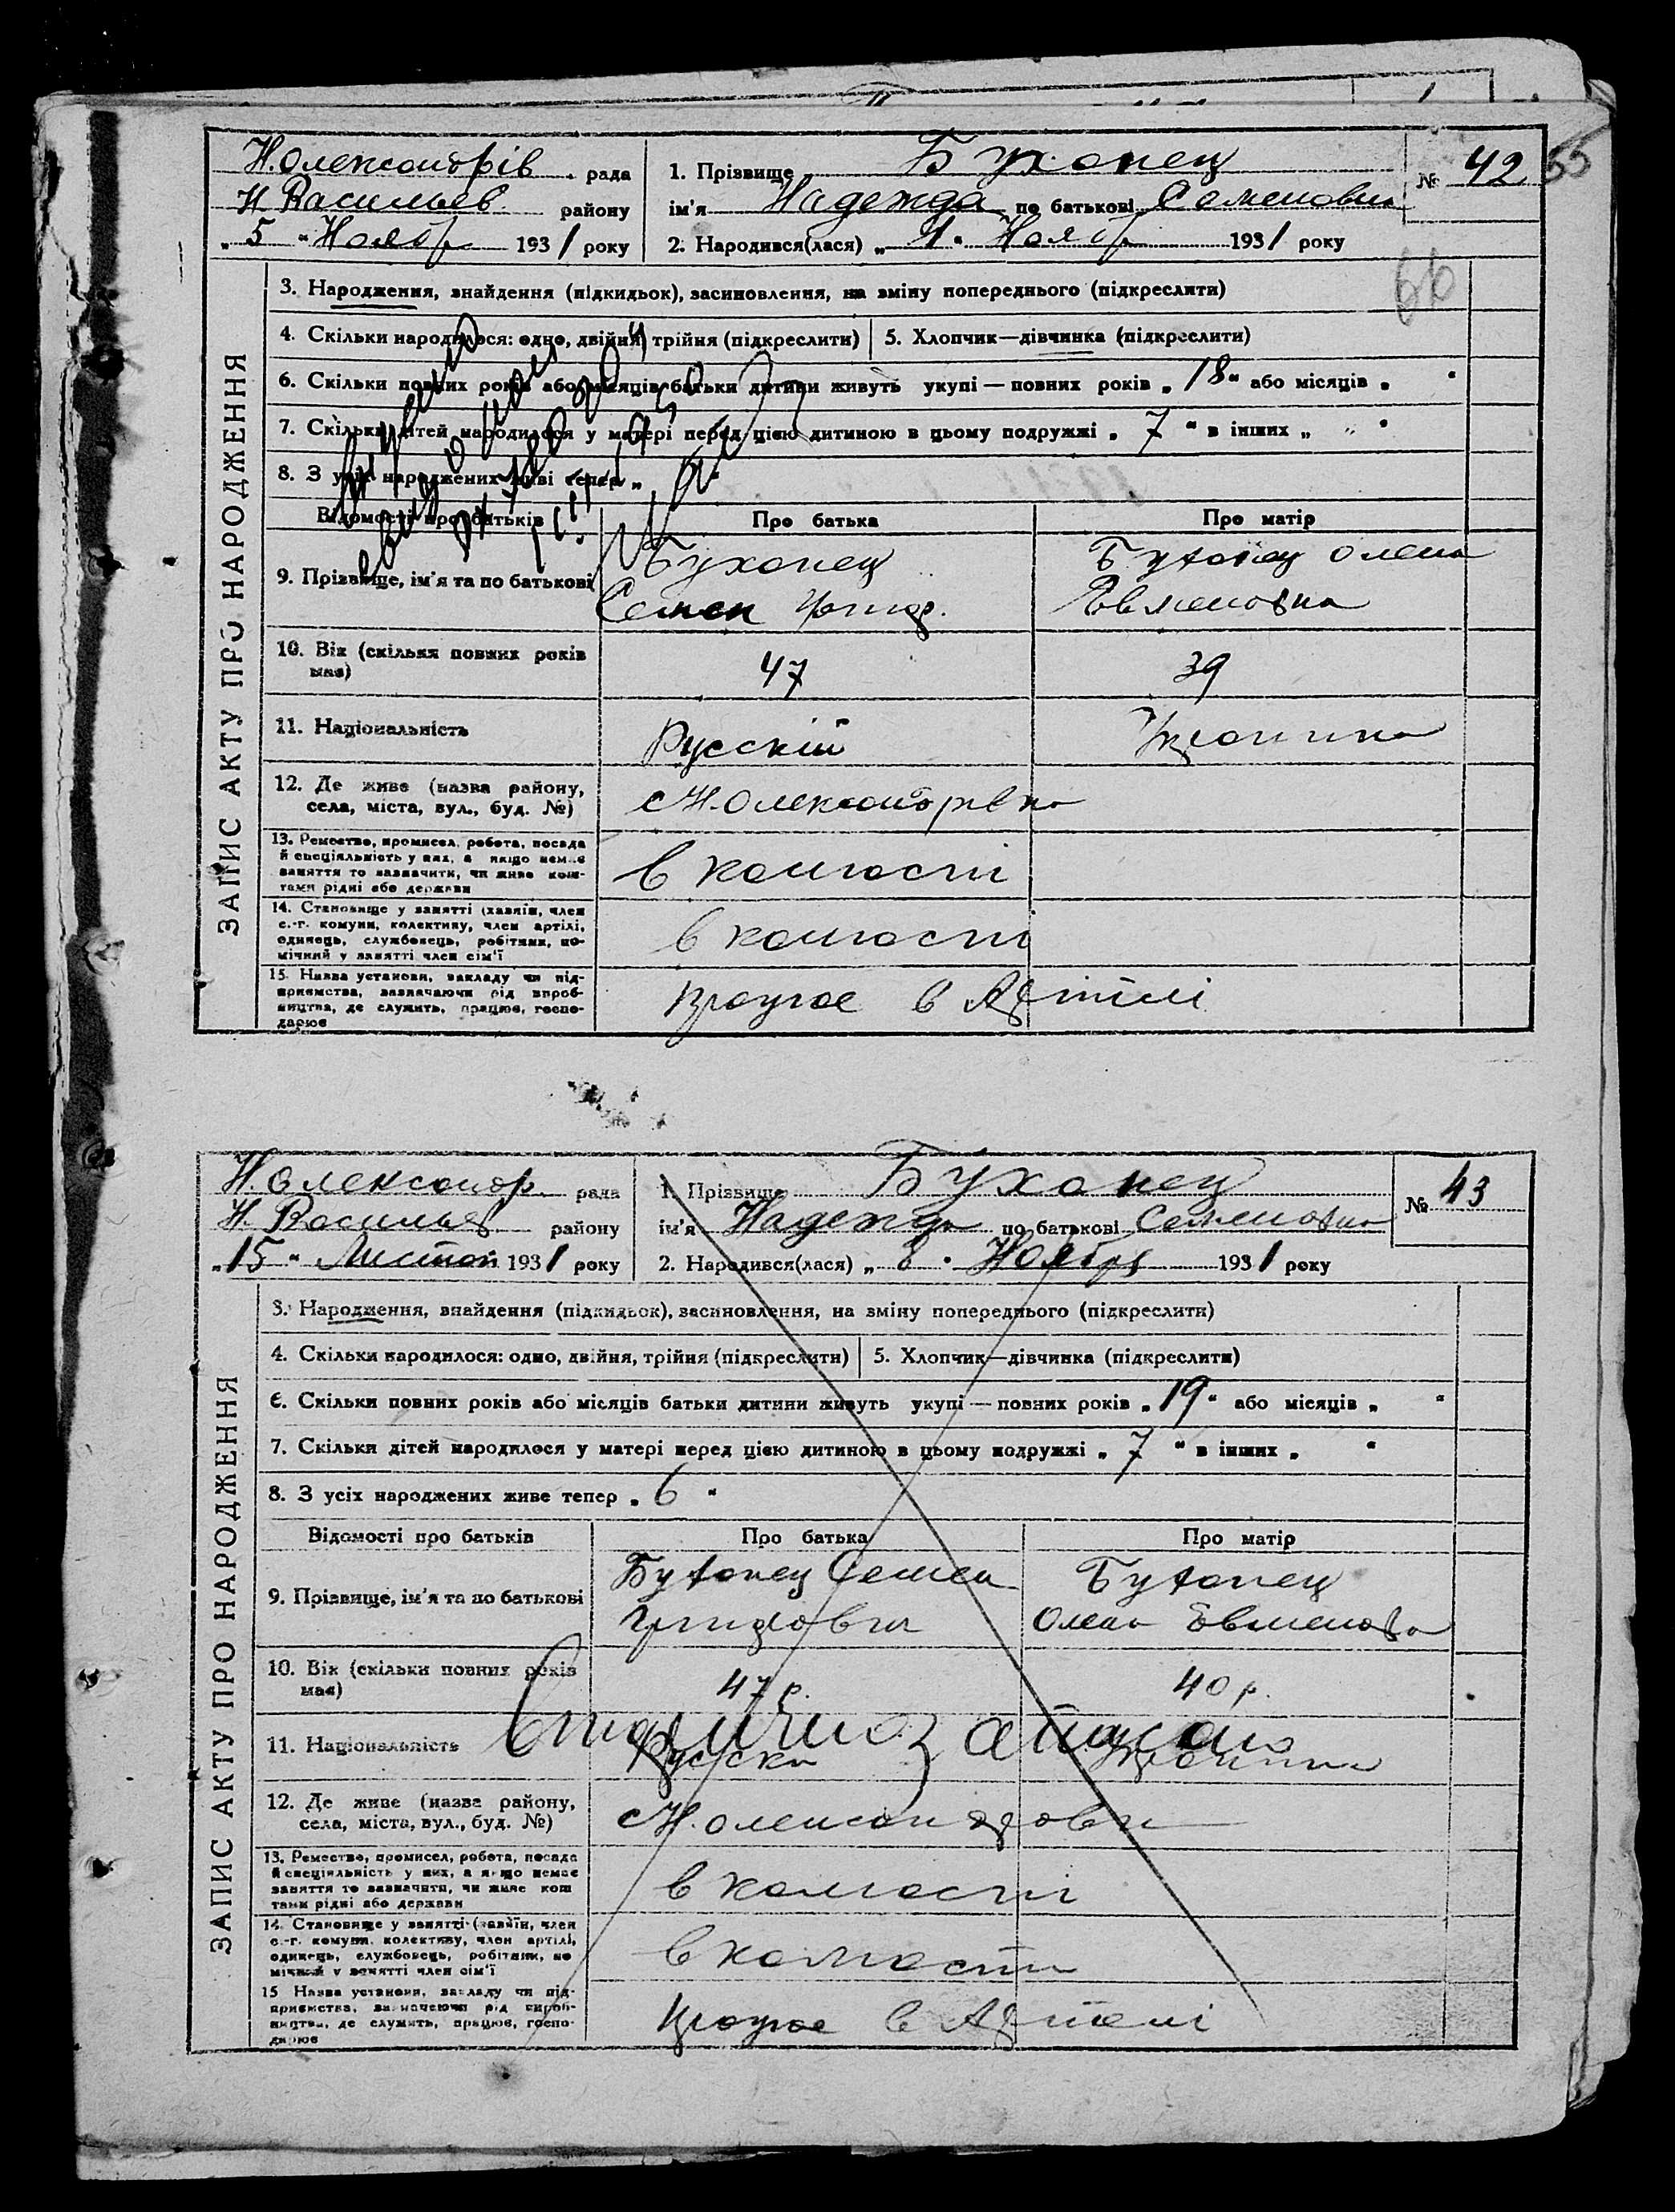 Н.Олександрів. рада
Н Васильев. району
„ 5 “ Ноябр 1931 року
1. Прізвище Буханец
ім'я Надежда по батькові Семеновна
2. Народився(лася) „ 4 “ Ноябр 1931 року
№ 42
55
66
ЗАПИС АКТУ ПРО НАРОДЖЕННЯ
3. Народження, знайдення (підкидьок), засиновлення, на зміну попереднього (підкреслити)
4. Скільки народилося: одно, двійня, трійня (підкреслити)
5. Хлопчик—дівчинка (підкреслити)
6. Скільки повних років або місяців батьки дитини живуть укупі — повних років „ 18 “ або місяців „ “
7. Скільки дітей народилося у матері перед цією дитиною в цьому подружжі „ 7 “ в інших „ “
8. З усіх народжених живі тепер „
Відомості про батьків
Про батька
Про матір
9. Прізвище, ім'я та по батькові
Буханец
Семен Григор.
Буханец Олена
Евменовна
10. Вік (скільки повних років
має)
47
39
11. Національність
Русскій
Украинка
12. Де живе (назва району,
села, міста, вул., буд. №)
с Н.Олександрівка
13. Ремество, промисел, робота, посада
й спеціяльність у них, а якщо немає
заняття то зазначити, чи живе кош-
тами рідні або держави
в колгоспі
14. Становище у занятті (хазяїн, член
с.-г. комуни, колективу, член артілі,
одинець, службовець, робітник, по-
мічний у занятті член сім'ї
в колгоспі
15. Назва установи, закладу чи під-
приємства, зазначаючи рід вироб-
ництва, де служить, працює, госпо-
дарює
працює в Артілі
Н.Олександр. рада
Н. Васильев. району
„ 15 “ Листоп 1931 року
1. Прізвище Буханец
ім'я Надежда по батькові Семеновна
2. Народився(лася) „ 8 “ Ноября 1931 року
№ 43
ЗАПИС АКТУ ПРО НАРОДЖЕННЯ
3. Народження, знайдення (підкидьок), засиновлення, на зміну попереднього (підкреслити)
4. Скільки народилося: одно, двійня, трійня (підкреслити)
5. Хлопчик—дівчинка (підкреслити)
6. Скільки повних років або місяців батьки дитини живуть укупі — повних років „ 19 “ або місяців „ “
7. Скільки дітей народилося у матері перед цією дитиною в цьому подружжі „ 7 “ в інших „ “
8. З усіх народжених живе тепер „ 6 “
Відомості про батьків
Про батька
Про матір
9. Прізвище, ім'я та по батькові
Буханец Семен
Григорович
Буханец
Олена Евменовна
10. Вік (скільки повних років
має)
47 р.
40 р.
Вторично записано
11. Національність
Руский
Украинка
12. Де живе (назва району,
села, міста, вул., буд. №)
с Н.Олександровки
13. Ремество, промисел, робота, посада
й спеціяльність у них, а якщо немає
заняття то зазначити, чи живе кош
тами рідні або держави
в колгоспі
14. Становище у занятті (хазяїн, член
с.-г. комуни, колективу, член артілі,
одинець, службовець, робітник, по
мічний у занятті член сім'ї
в колгоспи
15 Назва установи, закладу чи під-
приємства, зазначаючи рід вироб-
ництва, де служить, працює, госпо-
дарює
працює в Артелі